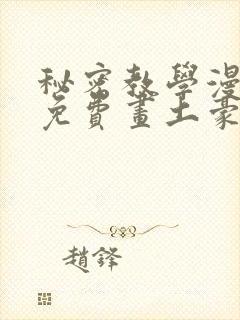 秘密教學漫
免費畫土豪
趙鋒